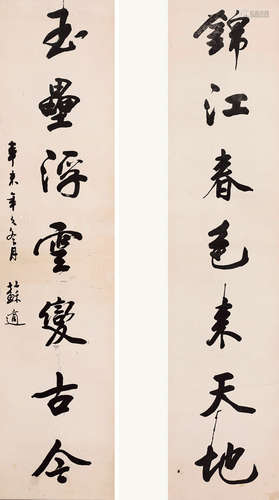 錦江春色来天地
玉壘浮雲變古今
辛未年之冬月
蘇適